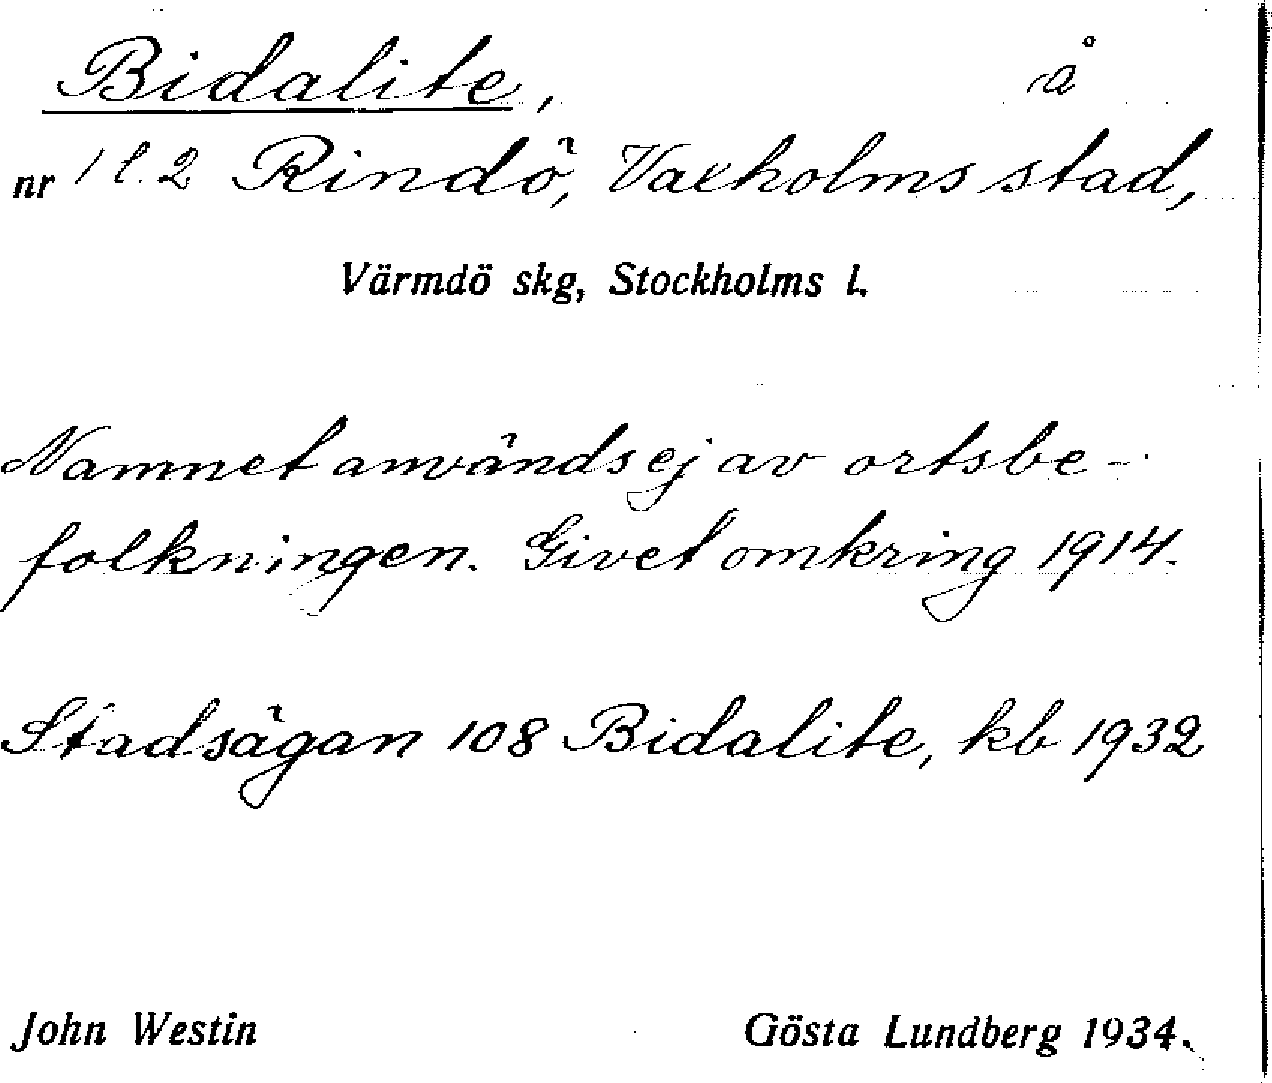 Bidalite, å
nr 1 l. 2 Rindö, Vaxholms stad,
Värmdö skg, Stockholms l.
Namnet användsej av ortsbe-
folkningen. Givet omkring 1914.
Stadsägan 108 Bidalite, kb 1932
John Westin Gösta Lundberg 1934.